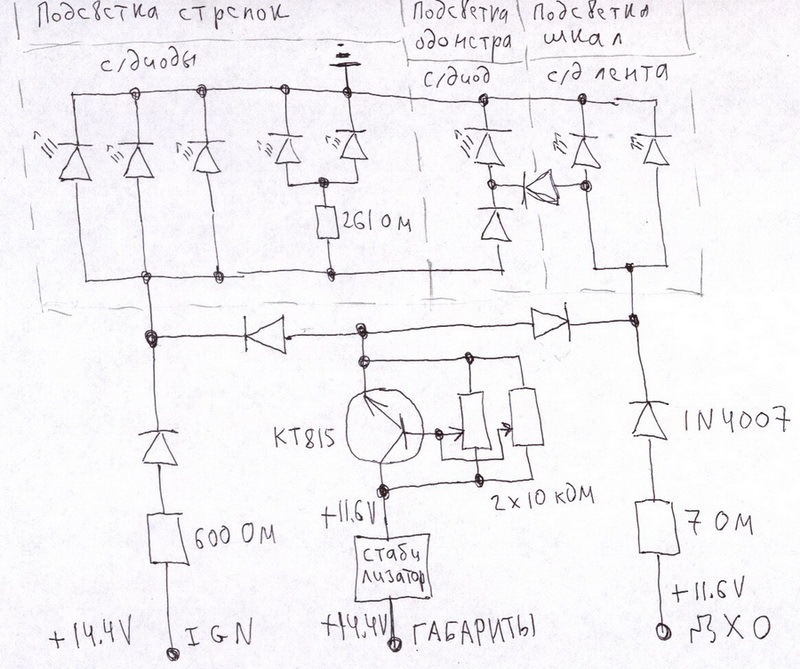 Подсветка стрелок
Подсветка
одометра
Подсветка
шкал
с/диоды
с/диод
с/д лента
261 Ом
КТ815
1N4007
+11.6V
2x10 кОм
600 Ом
7 Ом
стаби
лизатор
+11.6V
+14.4V IGN
+14.4V ГАБАРИТЫ
ДХО